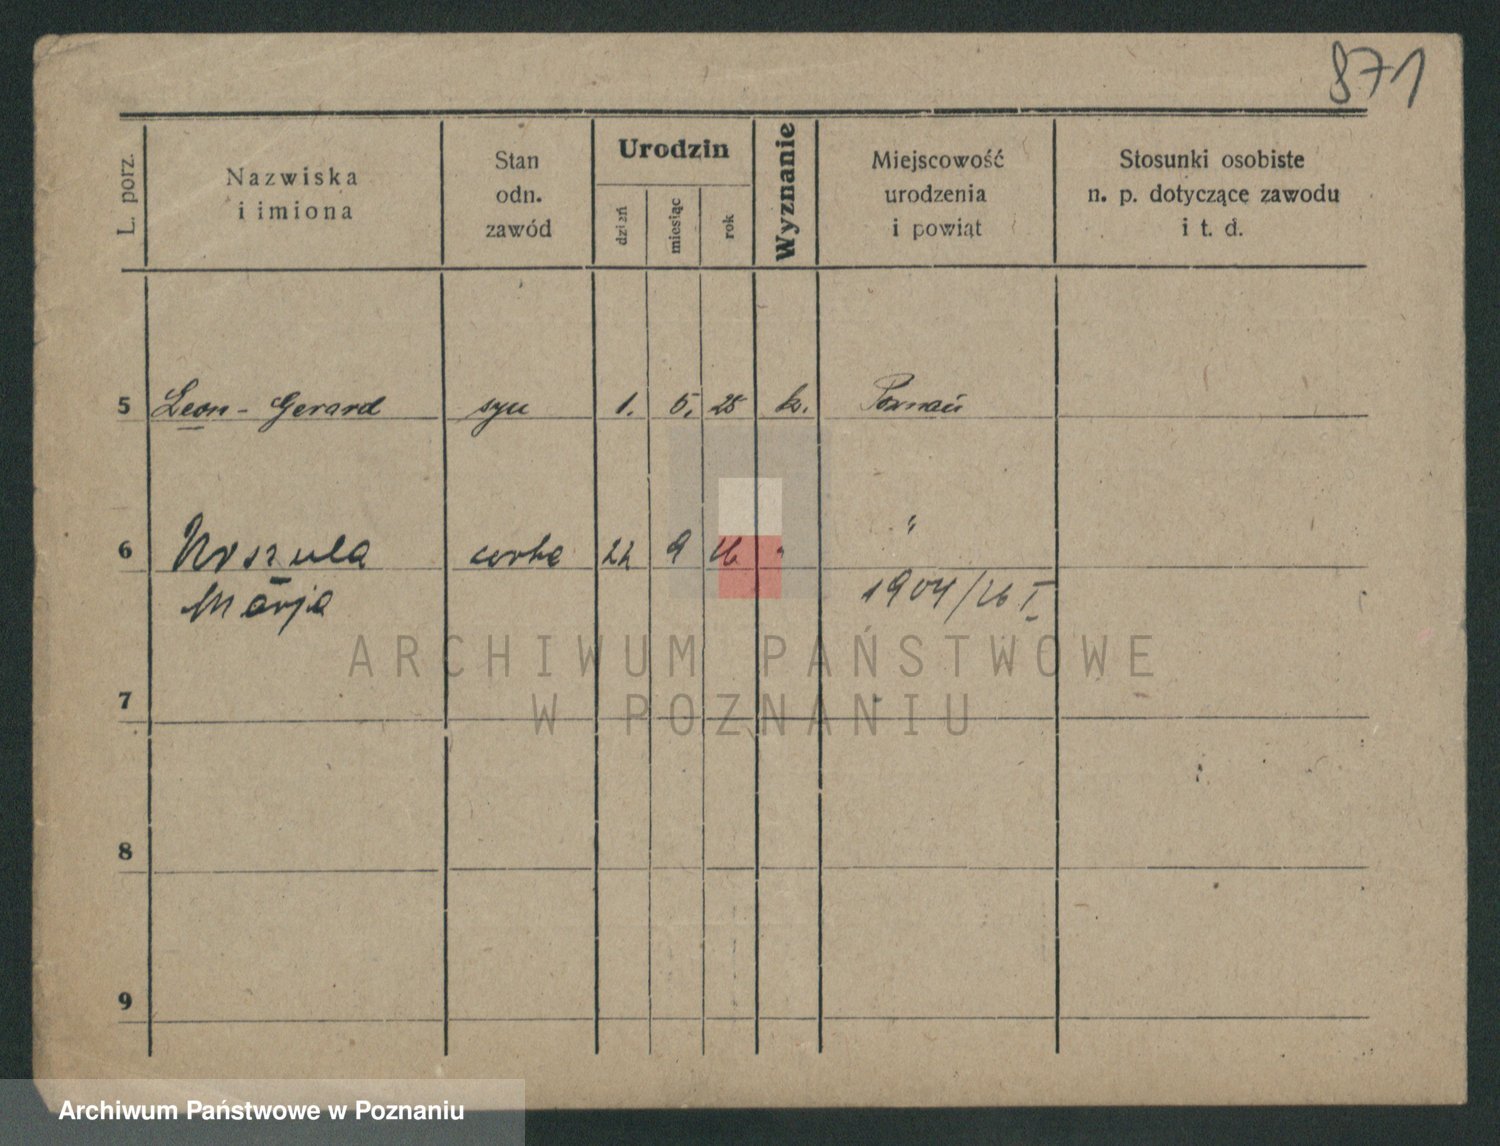 871
L. porz.
Nazwiska
i imiona
Stan
odn.
zawód
Urodzin
dzień
miesiąc
rok
Wyznanie
Miejscowość
urodzenia
i powiat
Stosunki osobiste
n. p. dotyczące zawodu
i t. d.
5 Leon - Gerard syn 1. 5. 25 k. Poznań
6 Urszula corka 22 9 26 " "
Marja 1904/26 I
ARCHIWUM PAŃSTWOWE
W POZNANIU
7
8
9
Archiwum Państwowe w Poznaniu